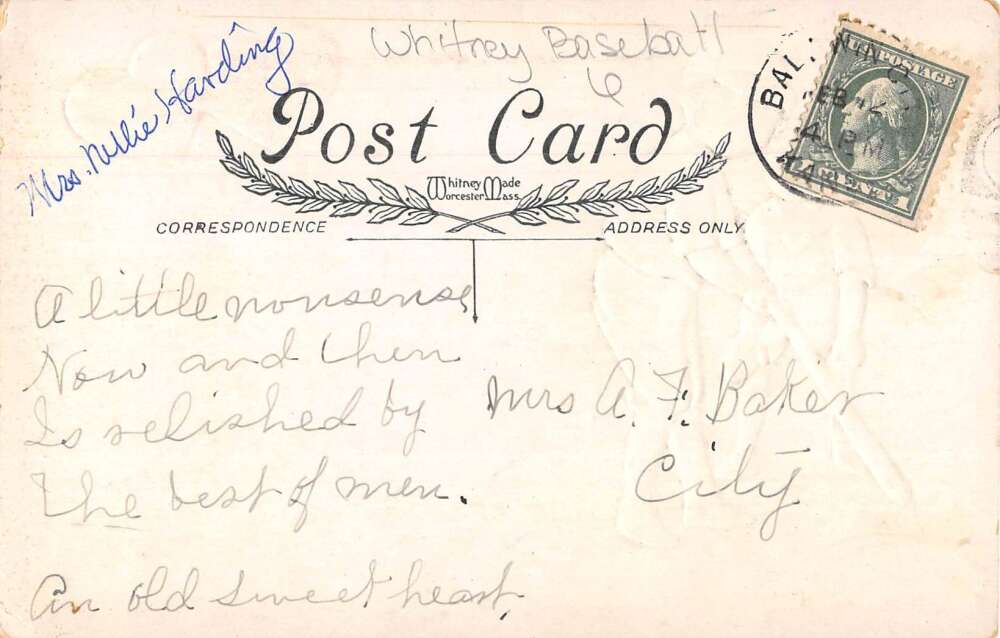 Whitney Baseball
6
Mrs. Nellie Harding
Post Card
Whitney Made
Worcester Mass
CORRESPONDENCE
ADDRESS ONLY
U.S. POSTAGE
FEB 12
4 PM
KAN
A little nonsense
Now and then
Is relished by
The best of men.
An old sweet heart.
Mrs A. F. Baker
City